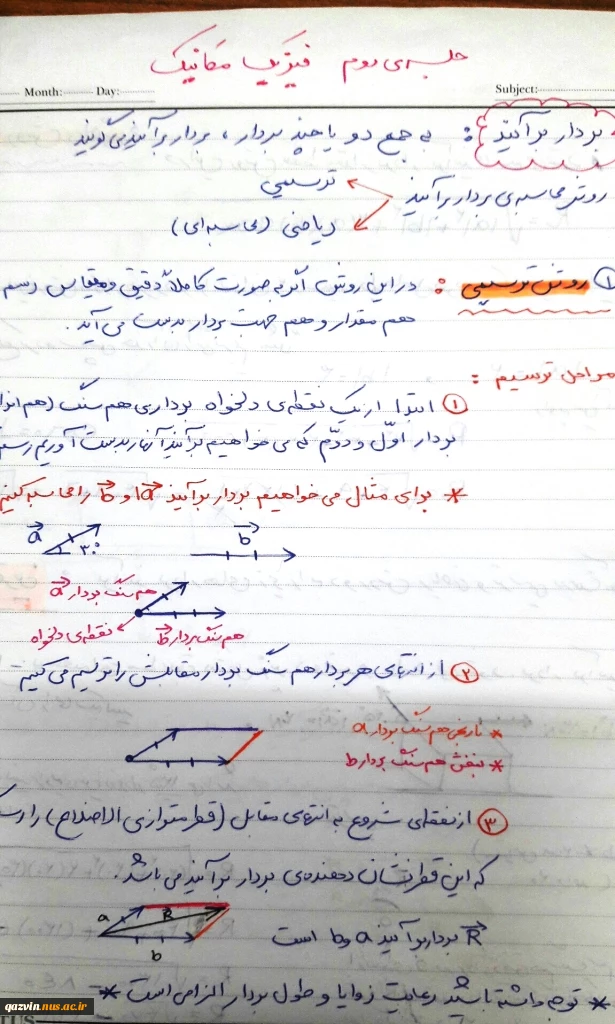 جلسه‌ی دوم فیزیک مکانیک
Month: Day: Subject:
بردار برآیند : به جمع دو یا چند بردار ، بردار برآیند می گویند
روش محاسبه‌ی بردار برآیند
ترسیمی
ریاضی (محاسبه‌ای)
① روش ترسیمی : در این روش اگر به صورت کاملاً دقیق و مقیاس رسم
هم مقدار و هم جهت بردار بدست می آید.
مراحل ترسیم :
① ابتدا از یک نقطه‌ی دلخواه برداری هم سنگ (هم اندا
بردار اوّل و دوّم که می خواهیم برآیند آنها را بدست آوریم رسم
* برای مثال می خواهیم بردار برآیند a و b را محاسبه کنیم
a ۳۰° b
هم سنگ بردار a
نقطه‌ی دلخواه هم سنگ بردار b
② از انتهای هر بردار هم سنگ بردار مقابلش را ترسیم می کنیم
* نارنجی هم سنگ بردار a
* بنفش هم سنگ بردار b
③ از نقطه‌ی شروع به انتهای مقابل (قطر متوازی الاضلاع) را
که این قطر نشان دهنده‌ی بردار برآیند می باشد.
a R b
R بردار برآیند a و b است
* توجه داشته باشید رعایت زوایا و طول بردار الزامی است *
qazvin.nus.ac.ir